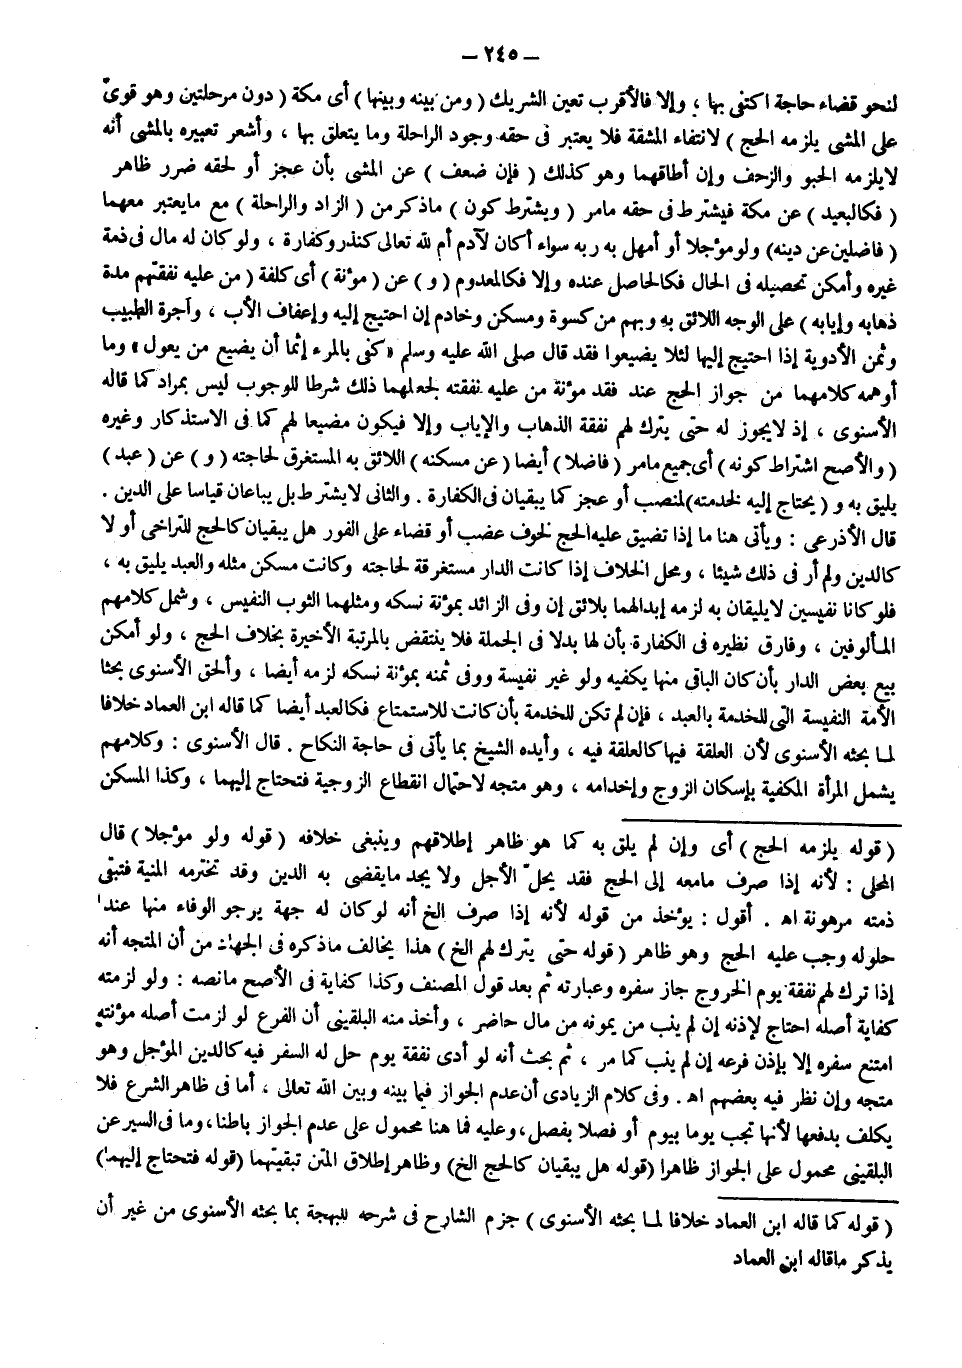 — ٢٤٥ —
لنحو قضاء حاجة اكتفى بها ، وإلا فالأقرب تعين الشريك ( ومن بينه وبينها ) أى مكة ( دون مرحلتين وهو قوىّ
على المشى يلزمه الحج ) لانتفاء المشقة فلا يعتبر فى حقه وجود الراحلة وما يتعلق بها ، وأشعر تعبيره بالمشى أنه
لايلزمه الحبو والزحف وإن أطاقهما وهو كذلك ( فإن ضعف ) عن المشى بأن عجز أو لحقه ضرر ظاهر
( فكالبعيد ) عن مكة فيشترط فى حقه مامر ( ويشترط كون ) ماذكر من ( الزاد والراحلة ) مع مايعتبر معهما
( فاضلين عن دينه ) ولو مؤجلا أو أمهل به ربه سواء أكان لآدم أم لله تعالى كنذر وكفارة ، ولو كان له مال فى ذمة
غيره وأمكن تحصيله فى الحال فكالحاصل عنده وإلا فكالمعدوم ( و ) عن ( مؤنة ) أى كلفة ( من عليه نفقتهم مدة
ذهابه وإيابه ) على الوجه اللائق به وبهم من كسوة ومسكن وخادم إن احتيج إليه وإعفاف الأب ، وأجرة الطبيب
وثمن الأدوية إذا احتيج إليها لئلا يضيعوا فقد قال صلى الله عليه وسلم « كفى بالمرء إثما أن يضيع من يعول » وما
أوهمه كلامهما من جواز الحج عند فقد مؤنة من عليه نفقته لجعلهما ذلك شرطا للوجوب ليس بمراد كما قاله
الأسنوى ، إذ لايجوز له حتى يترك لهم نفقة الذهاب والإياب وإلا فيكون مضيعا لهم كما فى الاستذكار وغيره
( والأصح اشتراط كونه ) أى جميع مامر ( فاضلا ) أيضا ( عن مسكنه ) اللائق به المستغرق لحاجته ( و ) عن ( عبد )
يليق به و ( يحتاج إليه لخدمته ) لمنصب أو عجز كما يبقيان فى الكفارة . والثانى لايشترط بل يباعان قياسا على الدين .
قال الأذرعى : ويأتى هنا ما إذا تضيق عليه الحج لخوف عضب أو قضاء على الفور هل يبقيان كالحج للتراخى أو لا
كالدين ولم أر فى ذلك شيئا ، ومحل الخلاف إذا كانت الدار مستغرقة لحاجته وكانت مسكن مثله والعبد يليق به ،
فلو كانا نفيسين لايليقان به لزمه إبدالهما بلائق إن وفى الزائد بمؤنة نسكه ومثلهما الثوب النفيس ، وشمل كلامهم
المألوفين ، وفارق نظيره فى الكفارة بأن لها بدلا فى الجملة فلا ينتقض بالمرتبة الأخيرة بخلاف الحج ، ولو أمكن
بيع بعض الدار بأن كان الباقى منها يكفيه ولو غير نفيسة ووفى ثمنه بمؤنة نسكه لزمه أيضا ، وألحق الأسنوى بحثا
الأمة النفيسة التى للخدمة بالعبد ، فإن لم تكن للخدمة بأن كانت للاستمتاع فكالعبد أيضا كما قاله ابن العماد خلافا
لما بحثه الأسنوى لأن العلقة فيها كالعلقة فيه ، وأيده الشيخ بما يأتى فى حاجة النكاح . قال الأسنوى : وكلامهم
يشمل المرأة المكفية بإسكان الزوج وإخدامه ، وهو متجه لاحتمال انقطاع الزوجية فتحتاج إليهما ، وكذا المسكن
( قوله يلزمه الحج ) أى وإن لم يلق به كما هو ظاهر إطلاقهم وينبغى خلافه ( قوله ولو مؤجلا ) قال
المحلى : لأنه إذا صرف مامعه إلى الحج فقد يحلّ الأجل ولا يجد مايقضى به الدين وقد تخترمه المنية فتبقى
ذمته مرهونة اه . أقول : يؤخذ من قوله لأنه إذا صرف الخ أنه لو كان له جهة يرجو الوفاء منها عند
حلوله وجب عليه الحج وهو ظاهر ( قوله حتى يترك لهم الخ ) هذا يخالف ماذكره فى الجهاد من أن المتجه أنه
إذا ترك لهم نفقة يوم الخروج جاز سفره وعبارته ثم بعد قول المصنف وكذا كفاية فى الأصح مانصه : ولو لزمته
كفاية أصله احتاج لإذنه إن لم ينب من يمونه من مال حاضر ، وأخذ منه البلقينى أن الفرع لو لزمت أصله مؤنته
امتنع سفره إلا بإذن فرعه إن لم ينب كما مر ، ثم بحث أنه لو أدى نفقة يوم حل له السفر فيه كالدين المؤجل وهو
متجه وإن نظر فيه بعضهم اه . وفى كلام الزيادى أن عدم الجواز فيما بينه وبين الله تعالى ، أما فى ظاهر الشرع فلا
يكلف بدفعها لأنها تجب يوما بيوم أو فصلا بفصل ، وعليه فما هنا محمول على عدم الجواز باطنا ، وما فى السير عن
البلقينى محمول على الجواز ظاهرا ( قوله هل يبقيان كالحج الخ ) وظاهر إطلاق المتن تبقيتهما ( قوله فتحتاج إليهما )
( قوله كما قاله ابن العماد خلافا لما بحثه الأسنوى ) جزم الشارح فى شرحه للبهجة بما بحثه الأسنوى من غير أن
يذكر ماقاله ابن العماد